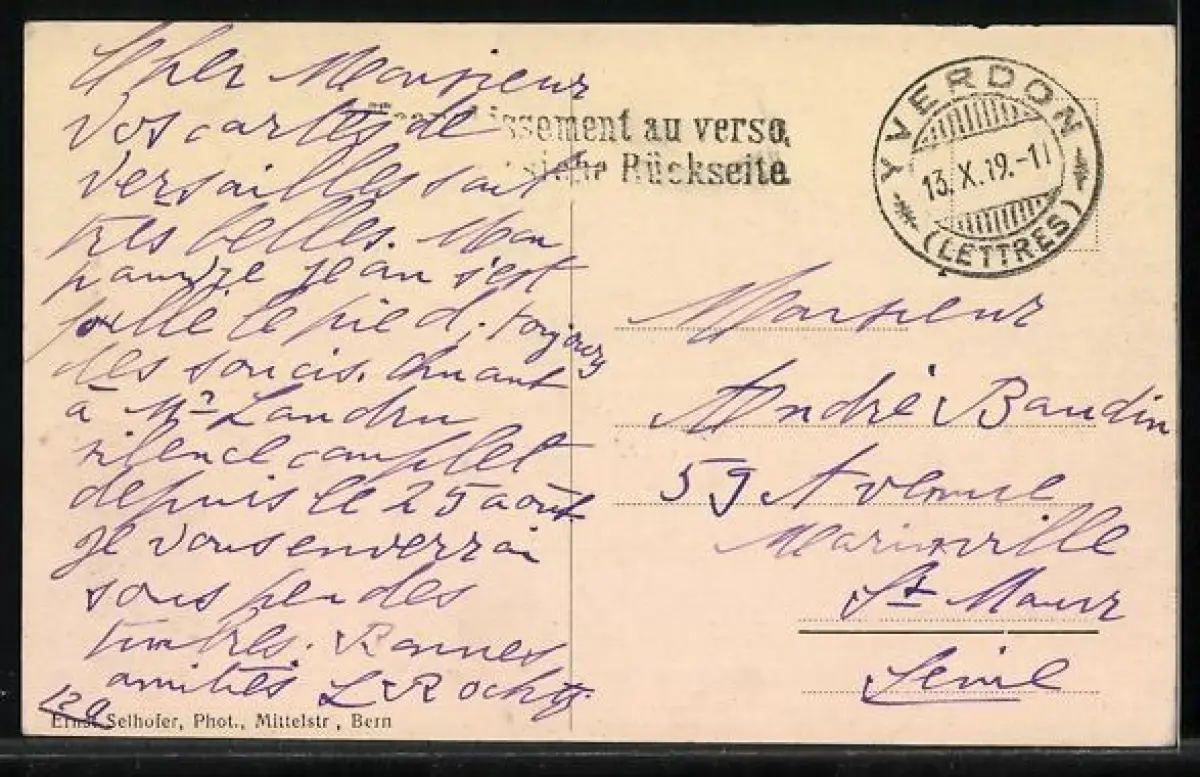 Cher Monsieur
Vos cartes de
Versailles sont
très belles. Mon
pauvre jean s'est
foulé le pied, toujours
des soucis. Quant
à Mr Landru
silence complet
depuis le 25 août
je vous enverrai
sous peu des
timbres. Bonnes
amitiés L Roch
issement au verso,
siehe Rückseite
YVERDON
13. X. 19.-11
(LETTRES)
Monsieur
André Baudin
59 Avenue
Marinville
St Maur
Seine
Ernst Selhofer, Phot., Mittelstr, Bern